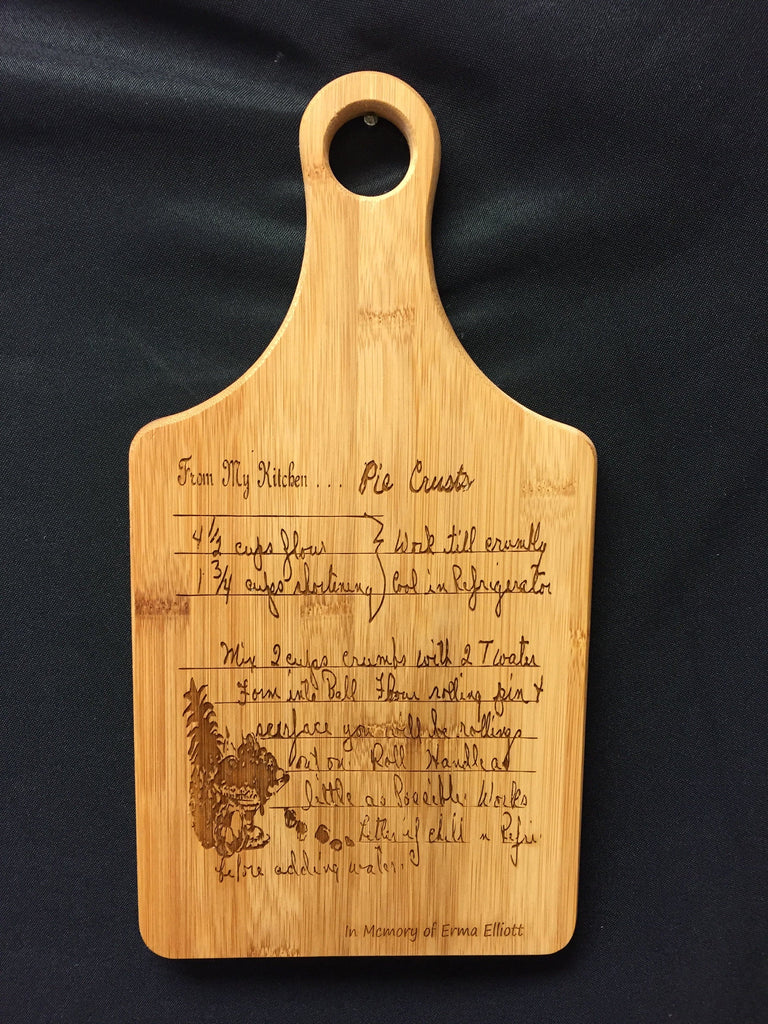 From My Kitchen . . . Pie Crusts
4 1/2 cups flour } Work till crumbly
1 3/4 cups shortening } Cool in Refrigerator
Mix 2 cups crumbs with 2 T water
Form into Ball Flour rolling pin &
surface you will be rollings
out on. Roll Handle as
little as Possible. Works
Better if chill n Refri.
before adding water.
In Memory of Erma Elliott